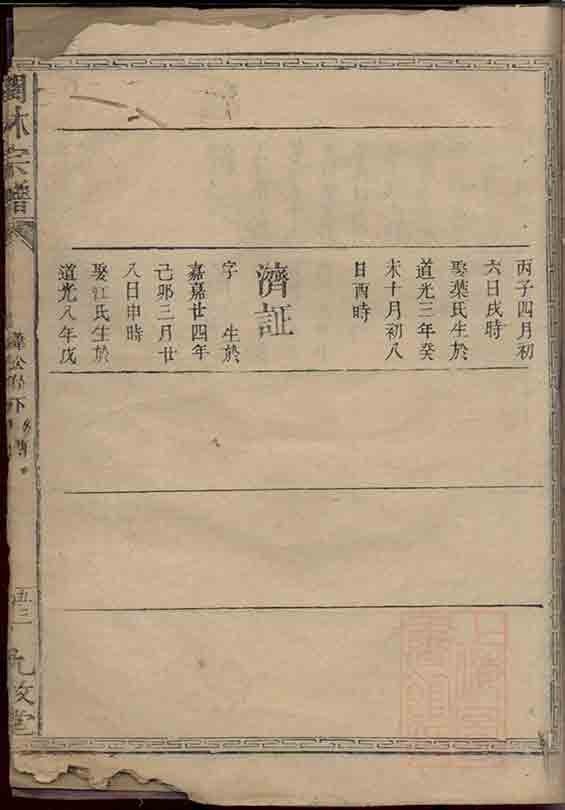 丙子四月初
六日戌時
娶葉氏生於
道光三年癸
未十月初八
日酉時
濟証
字 生於
嘉嘉廿四年
己卯三月廿
八日申時
娶江氏生於
道光八年戊
林宗譜
五三
九牧堂